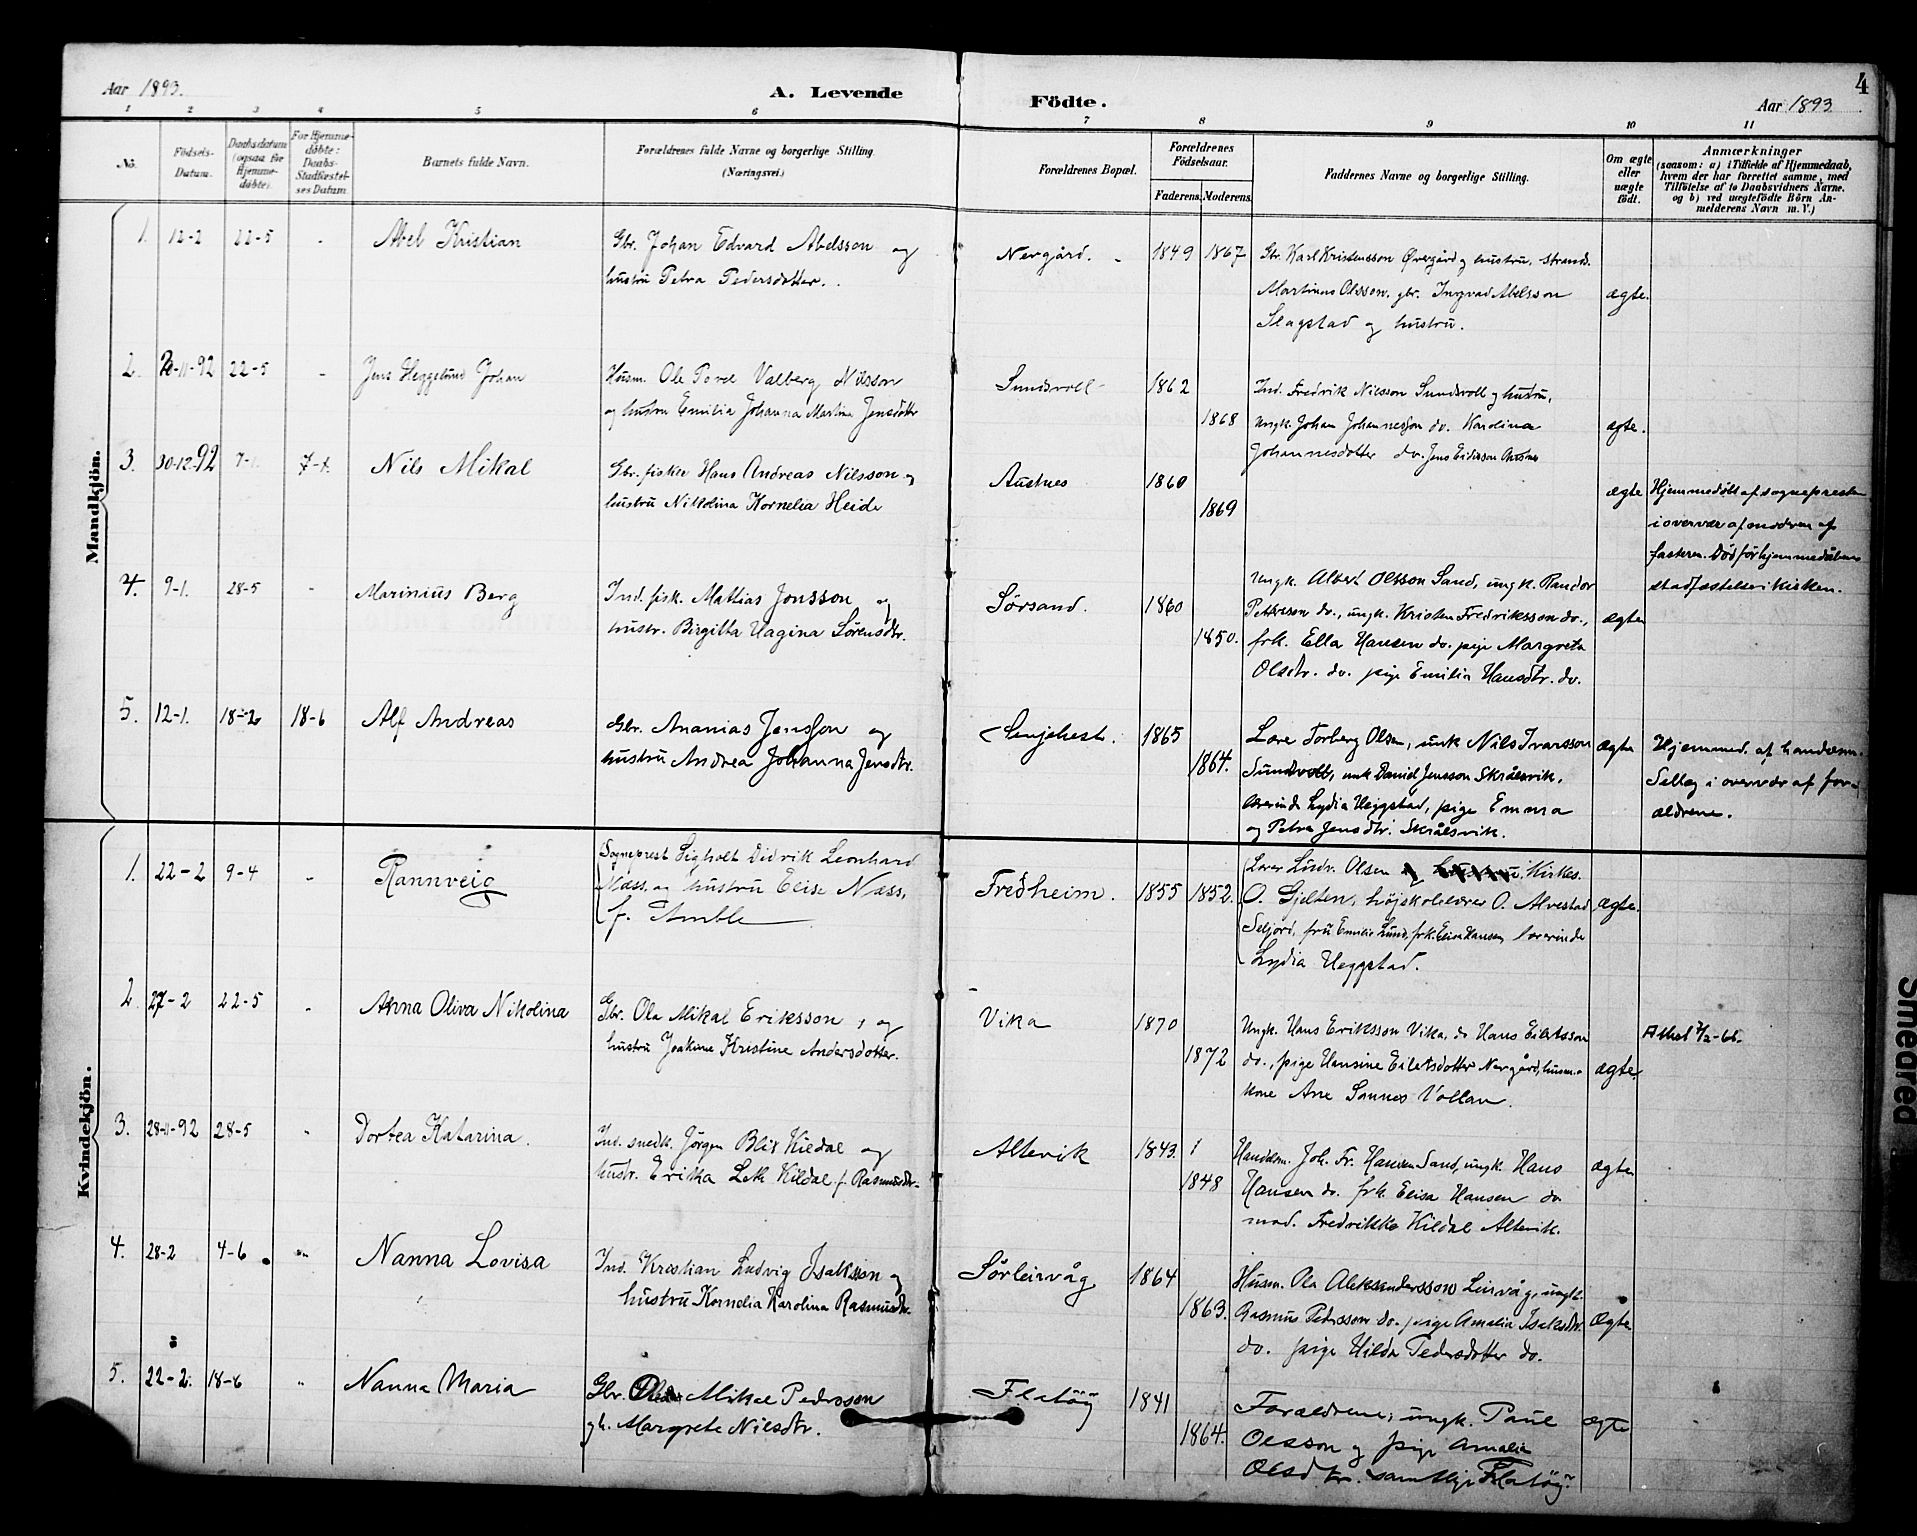 Aar 1893.
A. Levende Födte.
Aar 1893
4
1 2 3 4 5 6 7 8 9 10 11
No.
Födsels-Datum.
Daabsdatum (ogsaa for Hjemmedöbte).
For Hjemmedöbte: Daabs-Stadfæstelses Datum.
Barnets fulde Navn.
Forældrenes fulde Navne og borgerlige Stilling. (Næringsvei.)
Forældrenes Bopæl.
Forældrenes Födselsaar.
Faderens. Moderens.
Faddernes Navne og borgerlige Stilling.
Om ægte eller uægte födt.
Anmærkninger
(saasom: a) i Tilfælde af Hjemmedaab,
hvem der har forrettet samme, med
Tilföielse af to Daabsvidners Navne.
og b) ved uægtefödte Börn An-
melderens Navn m. V.)
Mandkjön.
1. 12-2 22-5 - Abel Kristian
Gbr. Johan Edvard Abelsson og
hustru Petra Pedersdotter.
Nergård. 1849 1867
Gbr. Karl Kristensson Øvergård og hustru, strands.
Martinus Olsson, gbr. Ingvad Abelsson
Slagstad og hustru.
ægte.
2. 20-11-92 22-5 - Jens Heggelund Johan
Husm. Ole Tord Valberg Nilsson
og hustru Emilia Johanna Martina Jensdotter
Sundsvoll 1862
1868
Ind. Fredrik Nilsson Sundsvoll og hustru,
ungk. Johan Johannesson do. Karolina
Johannesdotter do. Jens Eriksson
ægte.
3. 30-12-92 7-1. 7-1. Nils Mikal
Gbr. fisker Hans Andreas Nilsson og
hustru Nikolina Kornelia Heide
Austnes 1860
1869
ægte
Hjemmedøbt af sognepresten
i overvær af moderen og
fasteren. Død før hjemmedåbens
stadfæstelse i kirken.
4. 9-1. 28-5 - Marinius Berg
Ind. fisk. Mattias Jonsson og
hustr. Birgitta Hagina Sørensdtr.
Sørsand. 1860
1850.
Ungk. Albert Olsson Sand, ungk. Randor
Pettersen do., ungk. Kristen Fredriksson do.,
frk. Ella Hansen do. pige Margreta
Olsdtr. do. pige Emilia Hansdtr. do.
ægte
5. 12-1. 18-2 18-6 Alf Andreas
Gbr. Ananias Jensson og
hustru Andrea Johanna Jensdtr.
Senjehest. 1865
1864.
Lære Torberg Olsen, unk Nils Ivarsson
Sundvoll, unk Daniel Jensson Skrålsvik,
lærerinde Lydia Heggstad, pige Emma
og Petra Jensdtr. Skrålsvik.
ægte
Hjemmed. af handelsm.
Selley i overvær af for-
ældrene.
Kvindekjön.
1. 22-2 9-4 " Rannveig
Sogneprest Sigholt Didrik Leonhard
Næss, og hustru Elise Næss,
f. Amble
Fredheim. 1855 1852.
Lærer Ludv. Olsen og hustru, Kirkes.
O. Gjelten, højskolelærer O. Alvestad
Seljord, fru Emilie Lund, frk. Elise Hansen, lærerinde
Lydia Heggstad.
ægte.
2. 27-2 22-5 " Anna Oliva Nikolina
Gbr. Ola Mikal Eriksson, og
hustru Joakime Kristine Andersdotter.
Vika 1870
1872
Ungk. Hans Eriksson Vika, do Hans Eilertsson
do., pige Hansine Eilertsdotter Nergård, husm.-
kone Ane Sannes Vollan.
ægte.
Attest 7/2-66.
3. 28-11-92 28-5 " Dortea Katarina.
Ind. snedk. Jørgen Blix Kildal og
hustr. Erika Leth Kildal f. Rasmusdtr.
Altevik 1843.
1848
Handelsm. Joh. Fr. Hansen Sand, ungk. Hans
Hansen do. frk. Elisa Hansen do
mad. Fredrikke Kildal Altevik.
ægte
4. 28-2 4-6 " Nanna Lovisa
Ind. Krestian Ludvig Isaksson og
hustru Kornelia Karolina Rasmusdtr.
Sørleirvåg 1864
1863.
Husm. Ola Aleksandersson Leirvåg, ungk.
Rasmus Pedersson do. pige Amalia Isaksdtr.
do. pige Hilda Pedersdotter do.
Ægte
5. 22-2. 18-6 " Nanna Maria
Gbr. Ole Mikal Pedersson
gh. Margrete Nilsdtr.
Flatøy 1841
1864.
Forældrene, ungk. Paul
Olsson og pige Amalie
Olsdtr. samtlige Flatøy.
ægte
Smedred